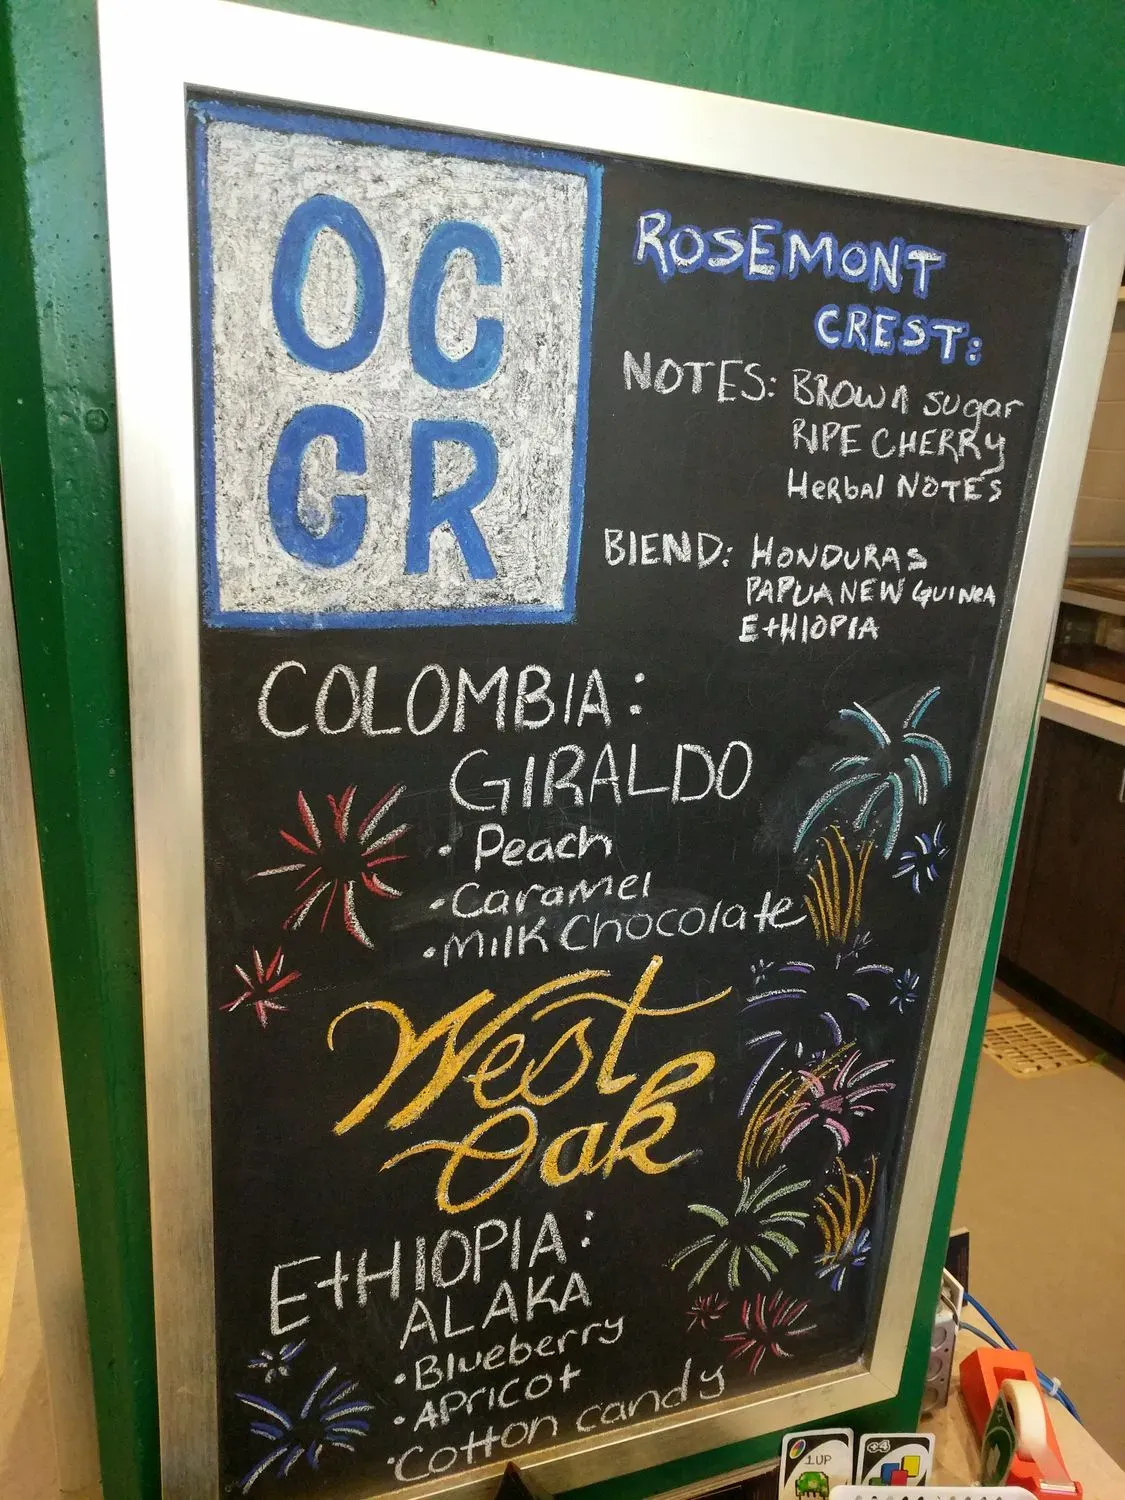 OC
CR
ROSEMONT
CREST:
NOTES: BROWN SUgar
RIPE CHERRY
HerbAl NOTES
BlEND: HONDURAS
PAPUA NEW GUINeA
EtHIOPIA
COLOMBIA:
GIRALDO
• Peach
• Caramel
• Milk Chocolate
West
Oak
EtHIOPIA:
ALAKA
• Blueberry
• APricot
• Cotton candy
1UP
+4